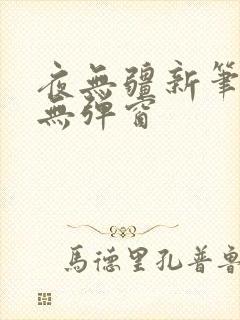 夜無疆新筆
無彈窗
馬德里孔普魯